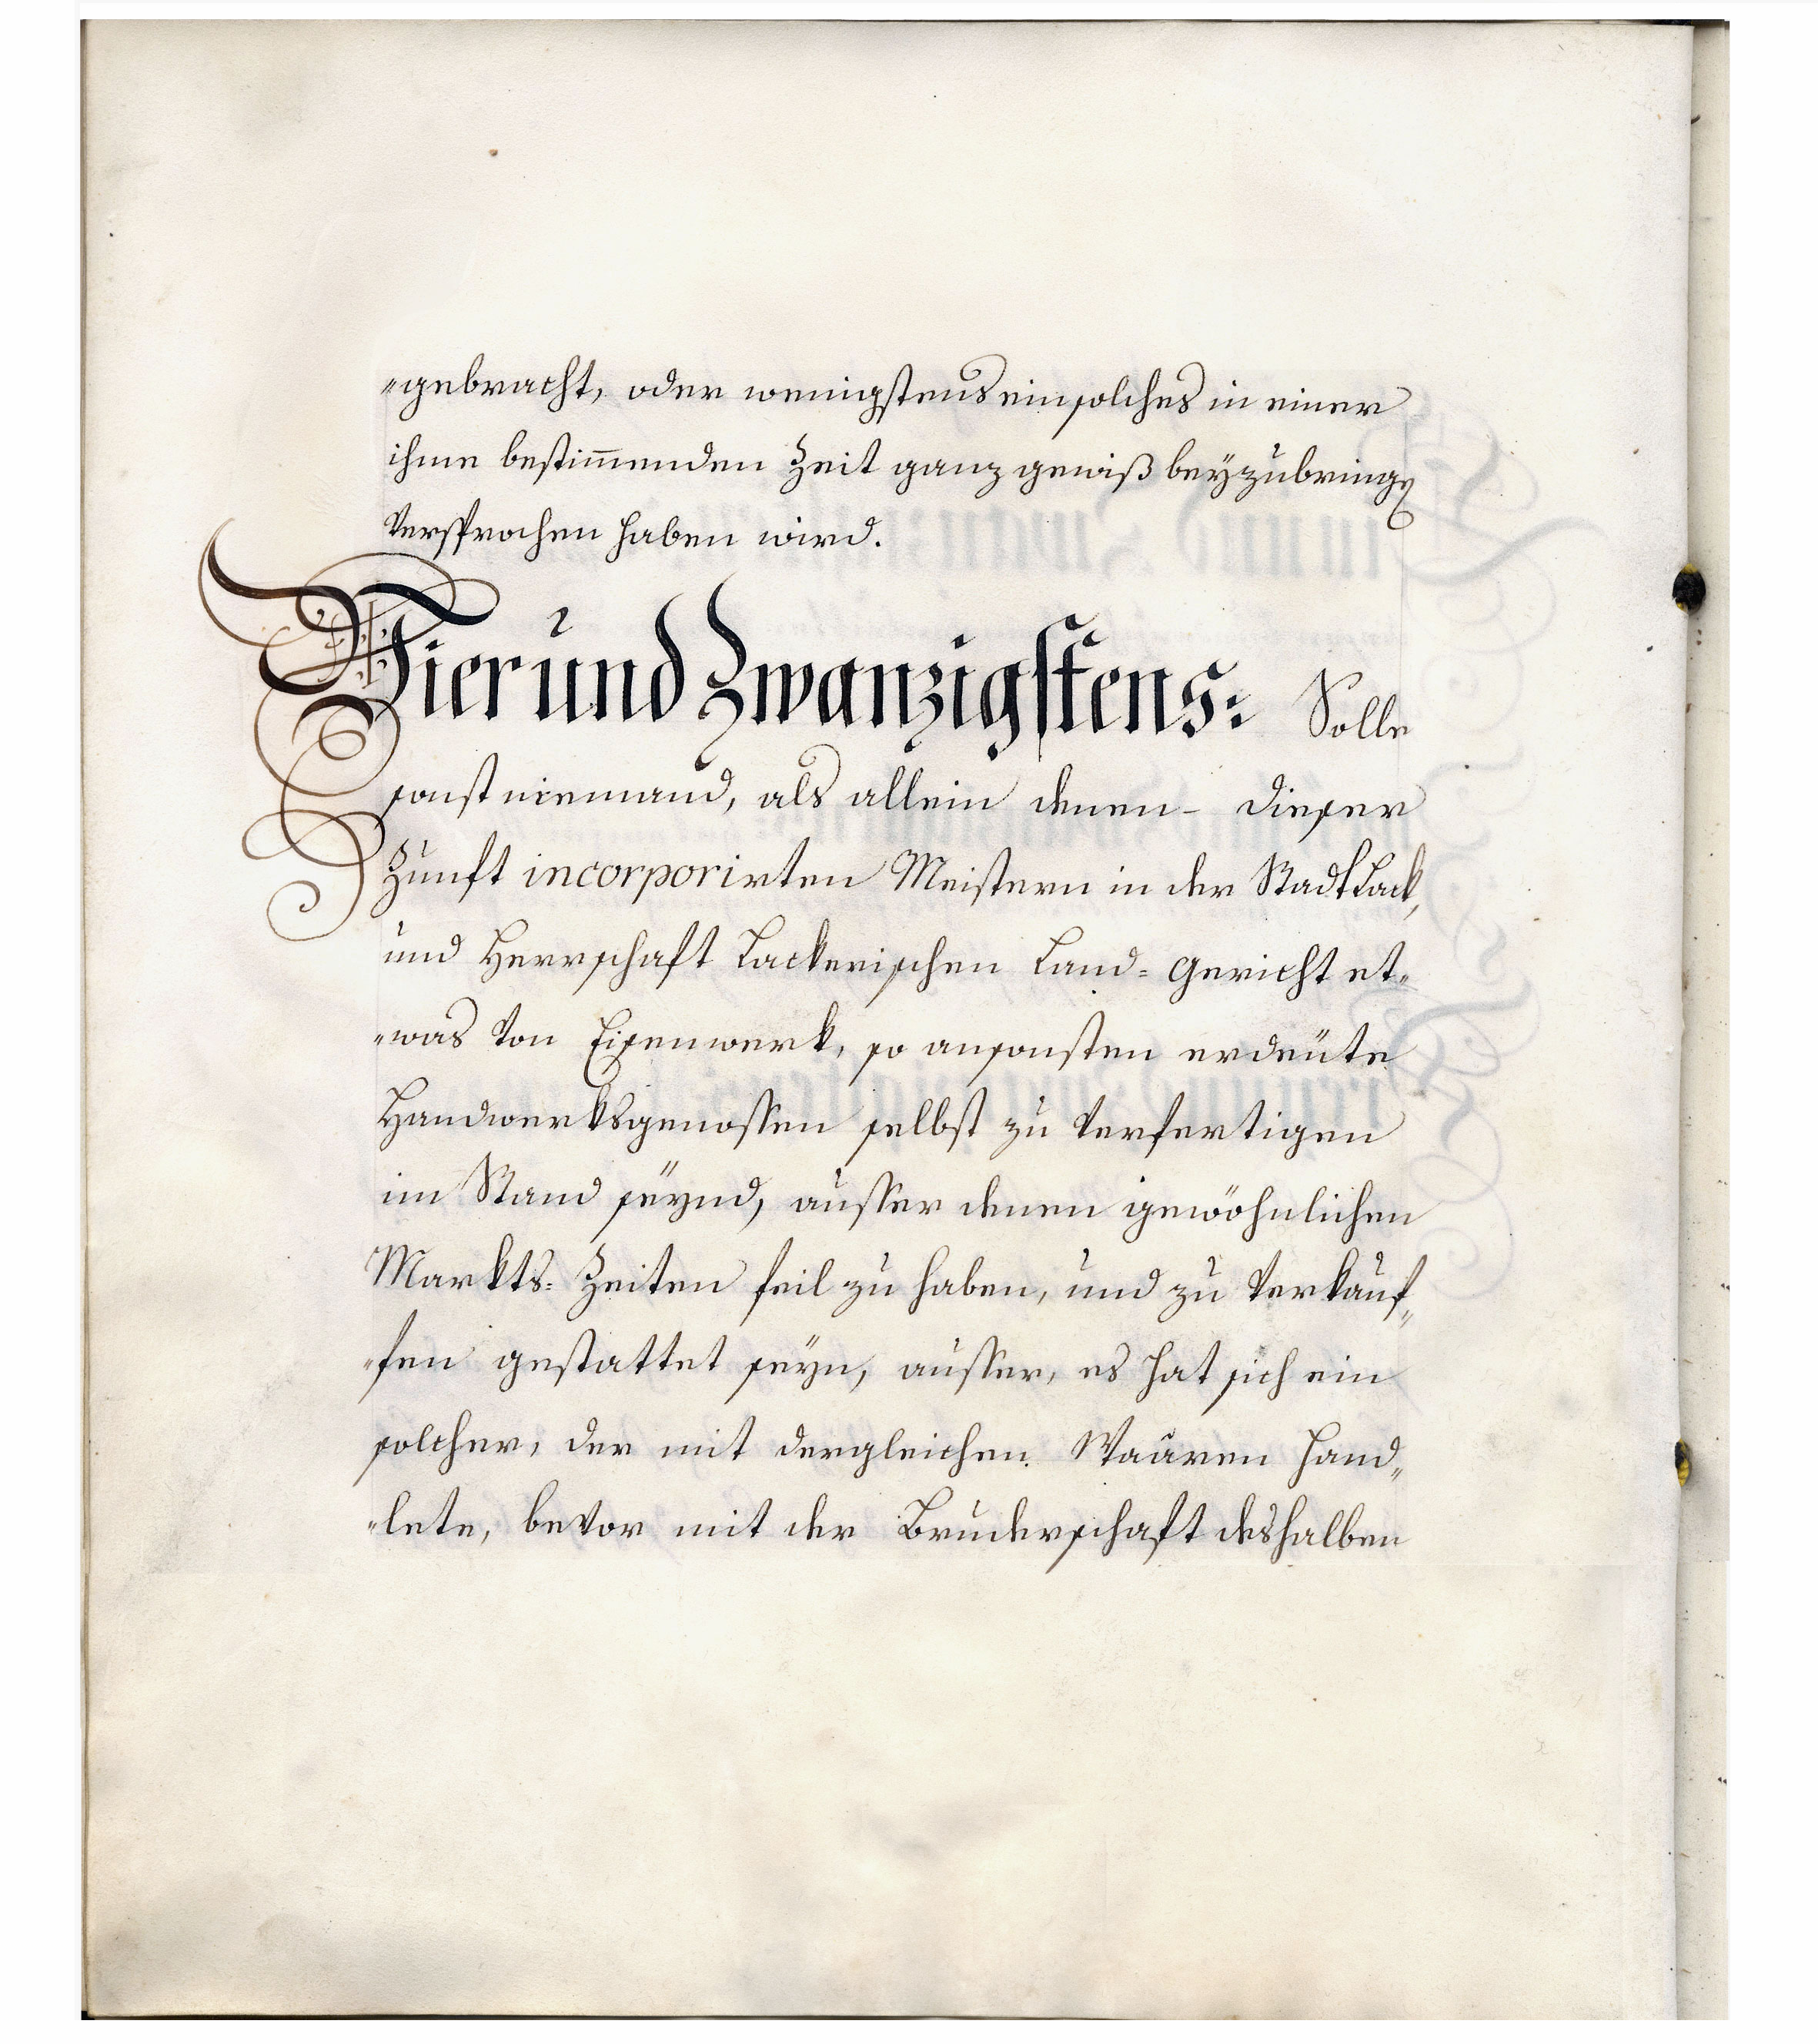 "gebracht, oder wenigstens ein solches in einer
ihme bestim̅enden Zeit ganz gewiß beyzubringen
versprochen haben wird.
Vierund Zwanzigstens: Solle
sonst niemand, als allein denen- dieser
Zunft incorporirten Meistern in der Stadt Lack,
und Herrschaft Lackerischen Land= Gericht et„
„was von Eisenwerk, so ansonsten erdeüte
Handwerksgenossen selbst zu verfertigen
im Stand seÿnd, ausser denen gewöhnlichen
Markts= Zeiten feil zu haben, und zu verkauf„
„fen gestattet seyn, ausser, es hat sich ein
solcher, der mit dergleichen Waaren hand„
„lete, bevor mit der Bruderschaft deshalben